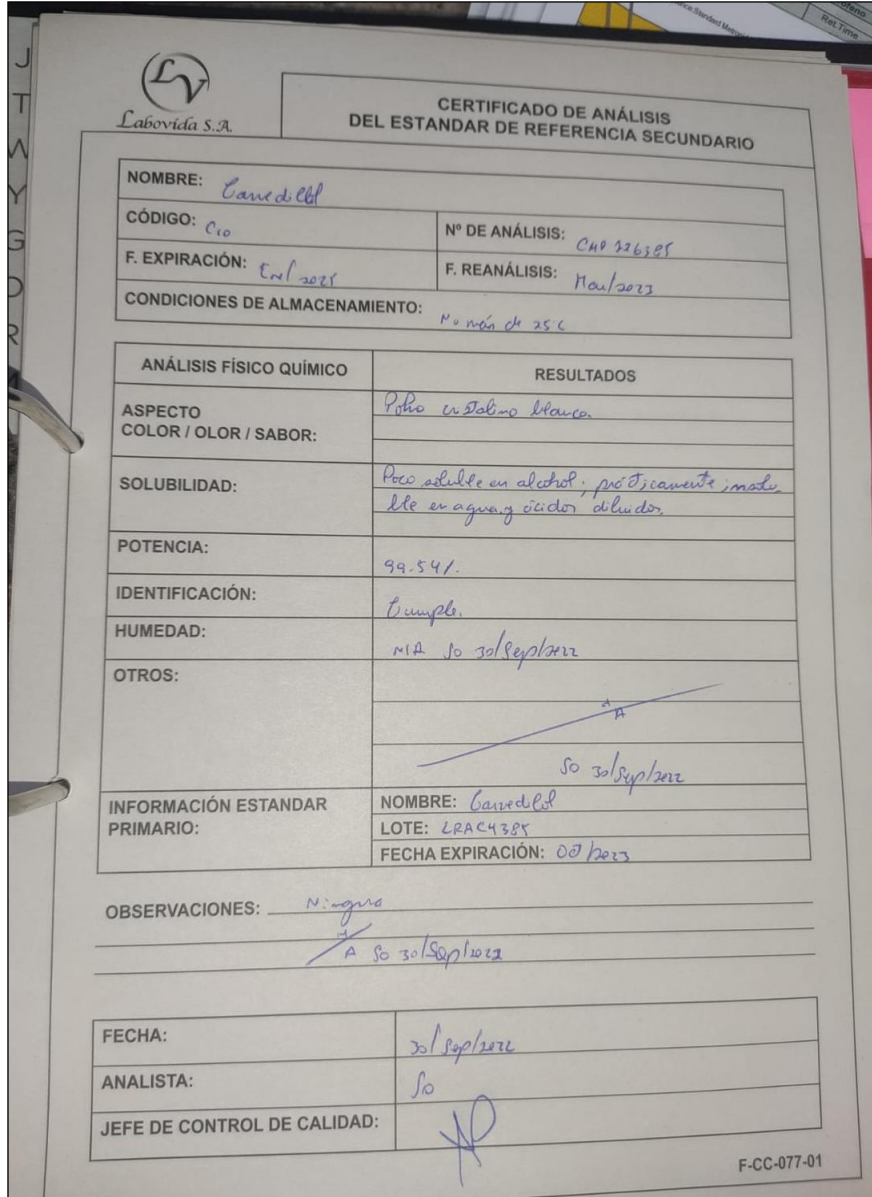 J
T
W
Y
G
D
R
Ret.Time
LV
Labovida S.A.
CERTIFICADO DE ANÁLISIS
DEL ESTANDAR DE REFERENCIA SECUNDARIO
NOMBRE: Carvedilol
CÓDIGO: C10
Nº DE ANÁLISIS:
F. EXPIRACIÓN: Ene/2025
F. REANÁLISIS: /2023
CONDICIONES DE ALMACENAMIENTO: No más de 25 C
ANÁLISIS FÍSICO QUÍMICO
RESULTADOS
ASPECTO
COLOR / OLOR / SABOR:
Polvo cristalino blanco.
SOLUBILIDAD:
Poco soluble en alcohol; prácticamente insolu-
ble en agua y ácidos diluidos.
POTENCIA: 99.54%.
IDENTIFICACIÓN: Cumple.
HUMEDAD: N/A SO 30/Sep/2022
OTROS:
N/A
SO 30/Sep/2022
INFORMACIÓN ESTANDAR
PRIMARIO:
NOMBRE: Carvedilol
LOTE: LRAC4385
FECHA EXPIRACIÓN: Oct/2023
OBSERVACIONES: Ninguna
N/A SO 30/Sep/2022
FECHA: 30/Sep/2022
ANALISTA: SO
JEFE DE CONTROL DE CALIDAD:
F-CC-077-01